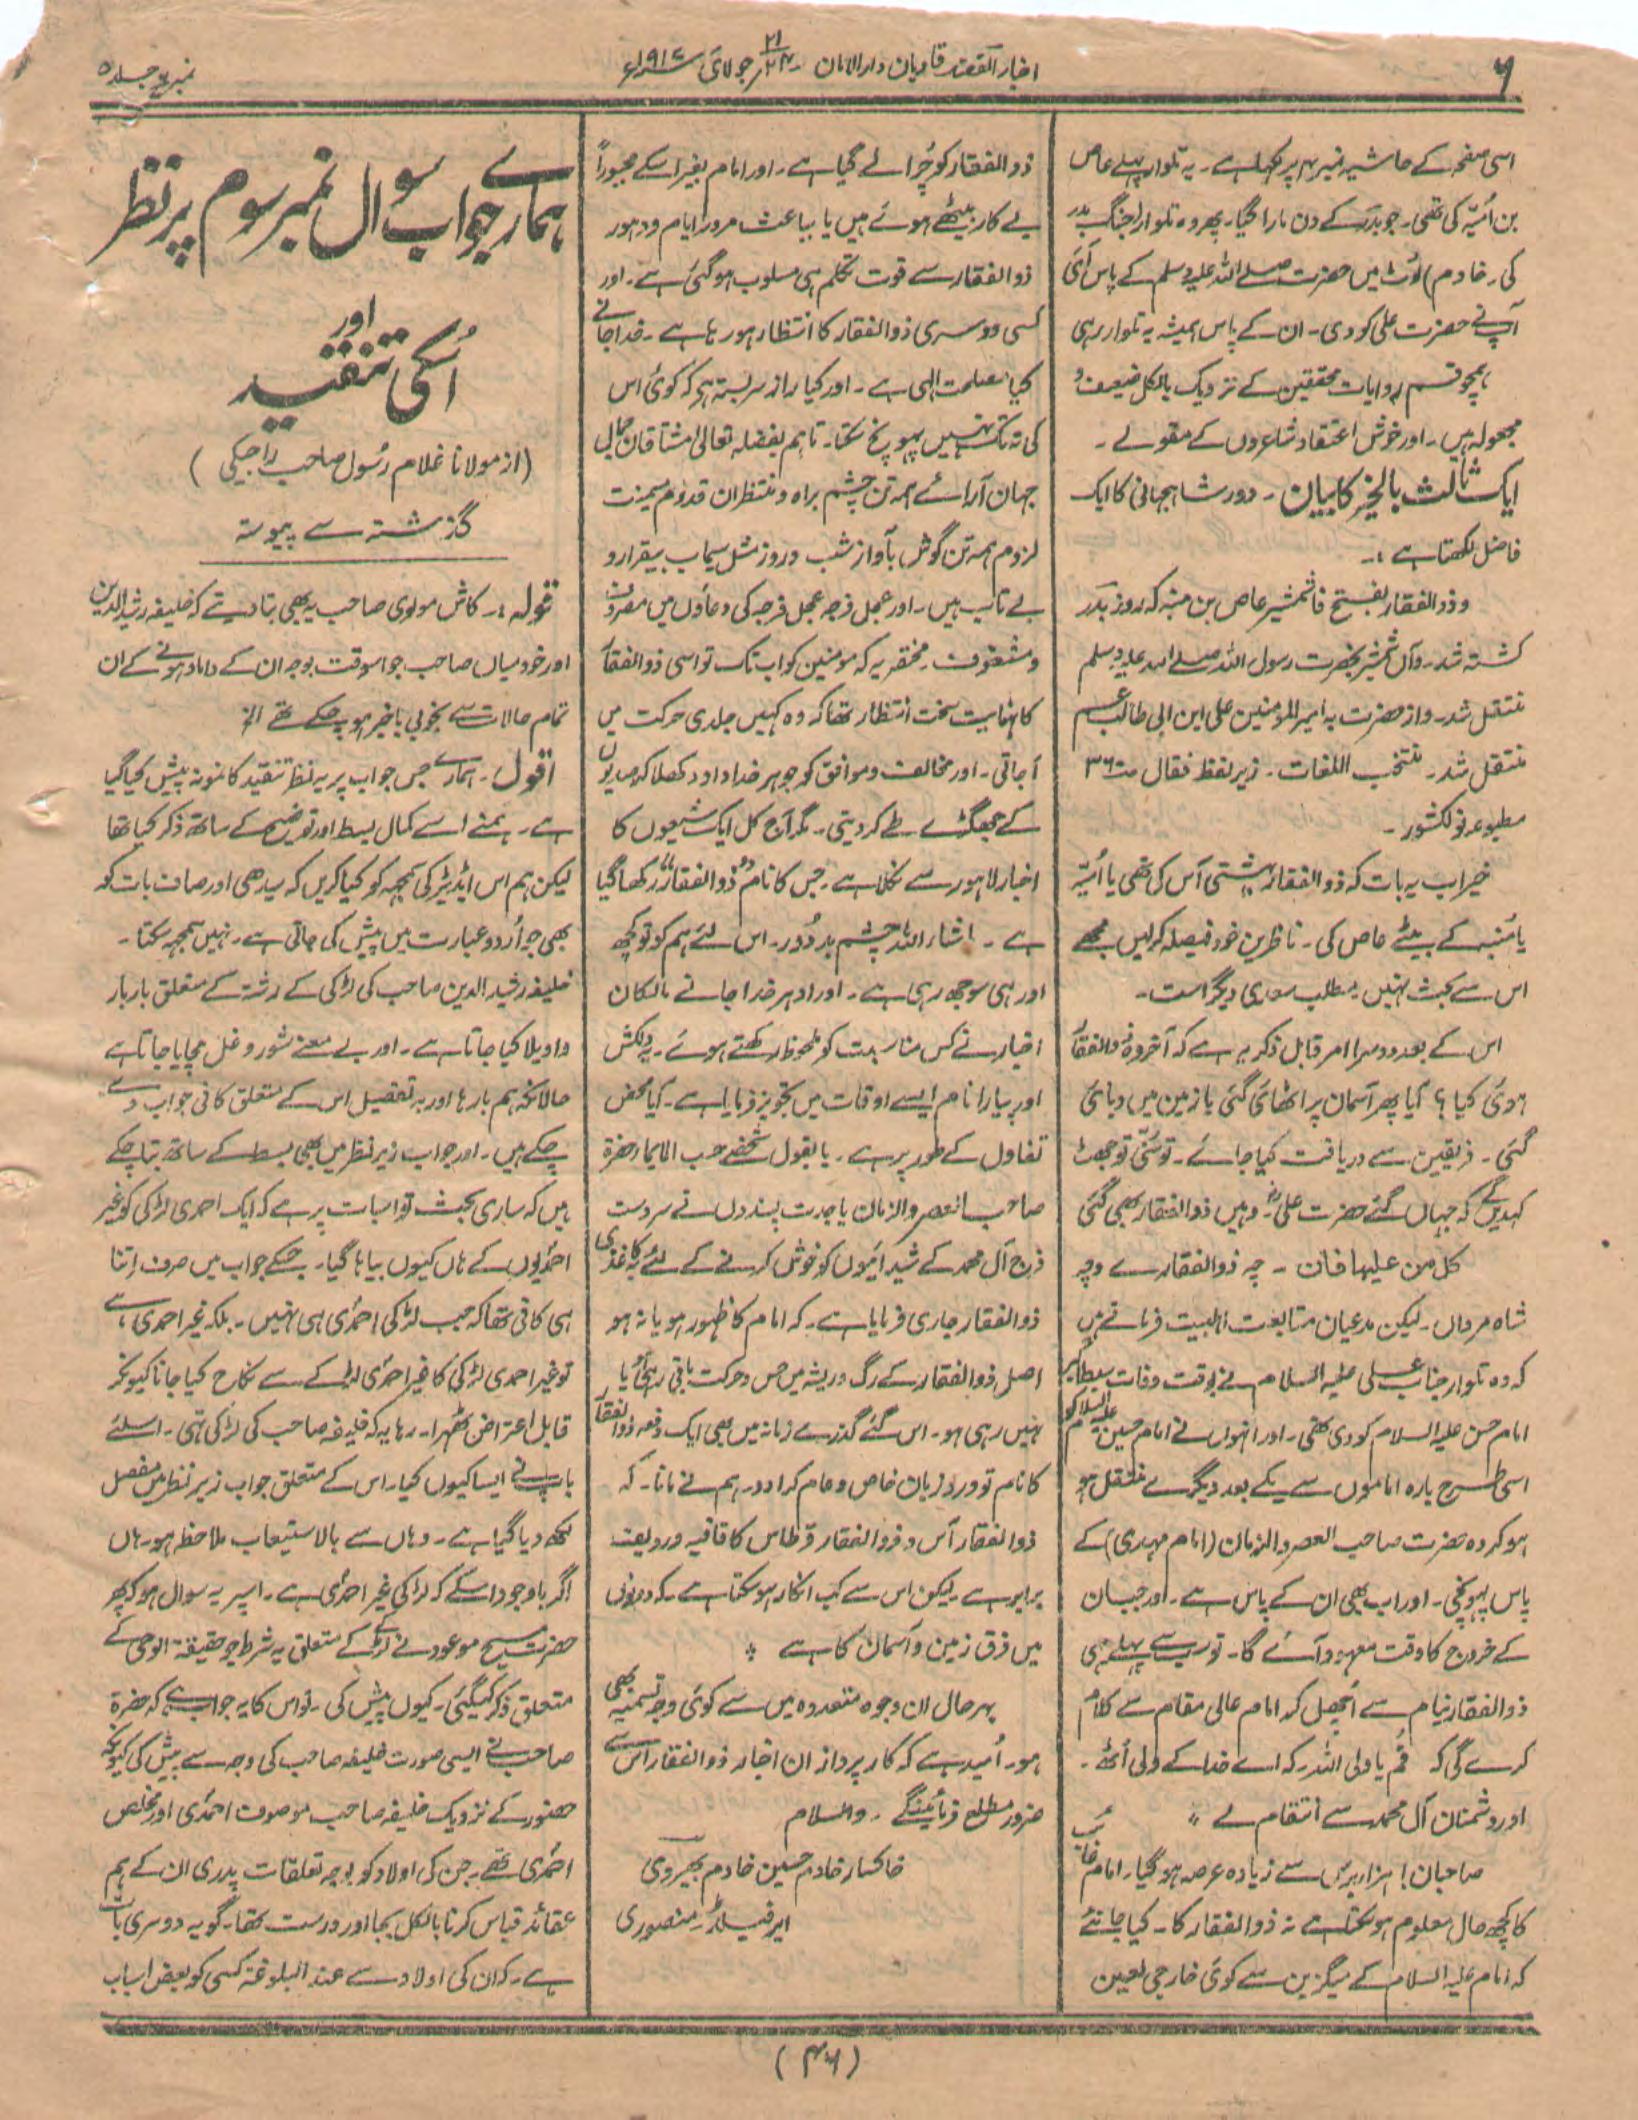 ۶
اخبار الفضل قادیان دارالامان ۲۱/۲۴ جولائی ۱۹۱۷ء
جلد ۵
اسی صفحہ کے حاشیہ نمبر ۴ پر لکھا ہے۔ یہ تلوار پہلے عاص
بن اُمیّہ کی تھی۔ جو بدر کے دن مارا گیا۔ پھر وہ تلوار (جنگ بدر
کی۔ خادم) لوٹ میں حضرت صلے اللہ علیہ وسلم کے پاس آئی
آپنے حضرت علی کو دی۔ ان کے پاس ہمیشہ یہ تلوار رہی
ہمچو قسم روایات محققین کے نزدیک بالکل ضعیف و
مجہولہ ہیں۔ اور خوش اعتقاد شاعروں کے مقولے۔
ایک ثالث بالخیر کا بیان۔ دور شاہجہانی کا ایک
فاضل لکھتا ہے:۔
وذوالفقار بفتح فا شمشیر عاص بن منبہ کہ روز بدر
کشتہ شد۔ وآں شمشیر بحضرت رسول اللہ صلے اللہ علیہ وسلم
منتقل شد۔ واز حضرت بہ امیرالمومنین علی ابن ابی طالب
منتقل شد۔ منتخب اللغات۔ زیر لفظ فقال ص۳۶۰
مطبوعہ نولکشور۔
خیر اب یہ بات کہ ذوالفقار بہشتی آس کی تھی یا اُمیّہ
یا مُنبہ کے بیٹے عاص کی۔ ناظرین خود فیصلہ کرلیں مجھے
اس سے بحث نہیں۔ مطلب سعدی دیگر است۔
اس کے بعد دوسرا امر قابل ذکر یہ ہے کہ آخر وہ ذوالفقار
ہوئی کیا؟ آیا پھر آسمان پر اٹھائی گئی یا زمین میں دبائی
گئی۔ فریقین سے دریافت کیا جائے۔ تو سُنّی تو جھٹ
کہدینگے کہ جہاں گئے حضرت علیؓ۔ وہیں ذوالفقار بھی گئی
کل من علیہا فان۔ چہ ذوالفقارے وچہ
شاہ مرداں۔ لیکن مدعیان متابعت اہلبیت فرماتے ہیں
کہ وہ تلوار جناب علی علیہ السلام نے بوقت وفات سبط اکبر
امام حسن علیہ السلام کو دی تھی۔ اور انہوں نے امام حسین علیہ السلام کو
اسی طرح بارہ اماموں سے یکے بعد دیگرے منتقل ہو
ہو کر وہ حضرت صاحب العصر والزمان (امام مہدی) کے
پاس پہونچی۔ اور اب بھی ان کے پاس ہے۔ اور جب ان
کے خروج کا وقت معہود آئے گا۔ تو سب سے پہلے یہی
ذوالفقار نیام سے اُچھل کر امام عالی مقام سے کلام
کرے گی کہ قم یا ولی اللہ۔ کہ اے خدا کے ولی اُٹھ۔
اور دشمنان آل محمد سے انتقام لے"
صاحبان! ہزار برس سے زیادہ عرصہ ہو گیا۔ امام غائب
کا کچھ حال معلوم ہو سکتا ہے نہ ذوالفقار کا۔ کیا جانئے
کہ امام علیہ السلام کے میگزین سے کوئی خارجی لعین
ذوالفقار کو چُرا لے گیا ہے۔ اور امام بغیر اسکے مجبوراً
بے کار بیٹھے ہوئے ہیں یا بباعث مرور ایام ودہور
ذوالفقار سے قوت تکلم ہی مسلوب ہو گئی ہے۔ اور
کسی دوسری ذوالفقار کا انتظار ہو رہا ہے۔ خدا جانے
کیا مصلحت الٰہی ہے۔ اور کیا راز سربستہ ہے کہ کوئی اس
کی تہ تک نہیں پہونچ سکتا۔ تاہم بفضلہ تعالیٰ مشتاقان جمال
جہان آرائے ہمہ تن چشم براہ و منتظران قدوم میمنت
لزوم ہمہ تن گوش بآواز شب و روز مثل سیماب بیقرار و
بے تاب ہیں۔ اور عجل فرجہ عجل فرجہ کی دعاؤں میں مصروف
و مشغوف۔ مختصر یہ کہ مومنین کو اب تک تو اسی ذوالفقار
کا نہایت سخت انتظار تھا کہ وہ کہیں جلدی حرکت میں
آ جاتی۔ اور مخالف و موافق کو جوہر خداداد دکھلا کر صدیوں
کے جھگڑے طے کر دیتی۔ مگر آج کل ایک شیعوں کا
اخبار لاہور سے نکلا ہے۔ جس کا نام "ذوالفقار" رکھا گیا
ہے۔ انشاء اللہ چشم بددور۔ اس لئے ہم کو تو کچھ
اور ہی سوجھ رہی ہے۔ اور ادہر خدا جانے مالکان
اخبار نے کس مناسبت کو ملحوظ رکھتے ہوئے۔ یہ دلکش
اور پیارا نام ایسے اوقات میں تجویز فرمایا ہے۔ آیا محض
تفاول کے طور پر ہے۔ یا بقول شخصے حسب الایماء حضرۃ
صاحب العصر والزمان یا جدت پسند دل نے سردست
فرج آل محمد کے شیدائیوں کو خوش کرنے کے لئے یہ کاغذی
ذوالفقار جاری فرمایا ہے۔ کہ امام کا ظہور ہو یا نہ ہو
اصل ذوالفقار کے رگ و ریشہ میں حس و حرکت باقی رہی ہو یا
نہیں رہی ہو۔ اس گئے گذرے زمانہ میں بھی ایک دفعہ ذوالفقار
کا نام تو ورد زبان خاص و عام کرا دو۔ ہم نے مانا۔ کہ
ذوالفقار آس و ذوالفقار قرطاس کا قافیہ و ردیف
برابر ہے۔ لیکن اس سے کب انکار ہو سکتا ہے۔ کہ دونوں
میں فرق زمین و آسمان کا ہے
بہر حال ان وجوہ متعددہ میں سے کوئی وجہ تسمیہ بھی
ہو۔ اُمید ہے کہ کار پردازان اخبار ذوالفقار اس سے
ضرور مطلع فرمائینگے۔ والسلام
خاکسار خادم حسین خادم بھیروی
ایرفیلڈ۔ منصوری
ہمارے جواب سوال نمبر سوم پر نظر
اور
اُسکی تنقید
(از مولانا غلام رسول صاحب راجیکی)
گزشتہ سے پیوستہ
قولہ:۔ کاش مولوی صاحب یہ بھی بتا دیتے کہ خلیفہ رشید الدین
اور خود میاں صاحب جو اسوقت بوجہ ان کے داماد ہونے کے ان
تمام حالات سے بخوبی باخبر ہو چکے تھے الخ
اقول۔ ہمارے جس جواب پر یہ نظر تنقید کا نمونہ پیش کیا گیا
ہے۔ ہمنے اسے کمال بسط اور توضیح کے ساتھ ذکر کیا تھا
لیکن ہم اس ایڈیٹر کی سمجھ کو کیا کریں کہ سیدھی اور صاف بات کو
بھی جو اُردو عبارت میں پیش کی جاتی ہے۔ نہیں سمجھ سکتا۔
خلیفہ رشید الدین صاحب کی لڑکی کے رشتہ کے متعلق بار بار
واویلا کیا جاتا ہے۔ اور بے معنے شور و غل مچایا جاتا ہے
حالانکہ ہم بارہا اور بہ تفصیل اس کے متعلق کافی جواب دے
چکے ہیں۔ اور جواب زیر نظر میں بھی بسط کے ساتھ بتا چکے
ہیں کہ ساری بحث تو اسبات پر ہے کہ ایک احمدی لڑکی کو غیر
احمدیوں کے ہاں کیوں بیاہا گیا۔ جسکے جواب میں صرف اتنا
ہی کافی تھا کہ جب لڑکی احمدی ہی نہیں۔ بلکہ غیر احمدی ہے
تو غیر احمدی لڑکی کا غیر احمدی لڑکے سے نکاح کیا جانا کیونکر
قابل اعتراض ٹھہرا۔ رہا یہ کہ خلیفہ صاحب کی لڑکی تھی۔ اسلئے
باپ نے ایسا کیوں کیا۔ اس کے متعلق جواب زیر نظر میں مفصل
لکھ دیا گیا ہے۔ وہاں سے بالاستیعاب ملاحظہ ہو۔ ہاں
اگر باوجود اسکے کہ لڑکی غیر احمدی ہے۔ اسپر یہ سوال ہو کہ پھر
حضرت مسیح موعود نے لڑکے کے متعلق یہ شرط جو حقیقۃ الوحی کے
متعلق ذکر کیگئی۔ کیوں پیش کی۔ تو اس کا یہ جواب ہے کہ حضرۃ
صاحب نے ایسی صورت خلیفہ صاحب کی وجہ سے پیش کی کیونکہ
حضور کے نزدیک خلیفہ صاحب موصوف احمدی اور مخلص
احمدی تھے۔ جن کی اولاد کو بوجہ تعلقات پدری ان کے ہم
عقائد قیاس کرنا بالکل بجا اور درست تھا۔ گو یہ دوسری بات
ہے۔ کہ ان کی اولاد سے عند البلوغۃ کسی کو بعض اسباب
(۴۶)